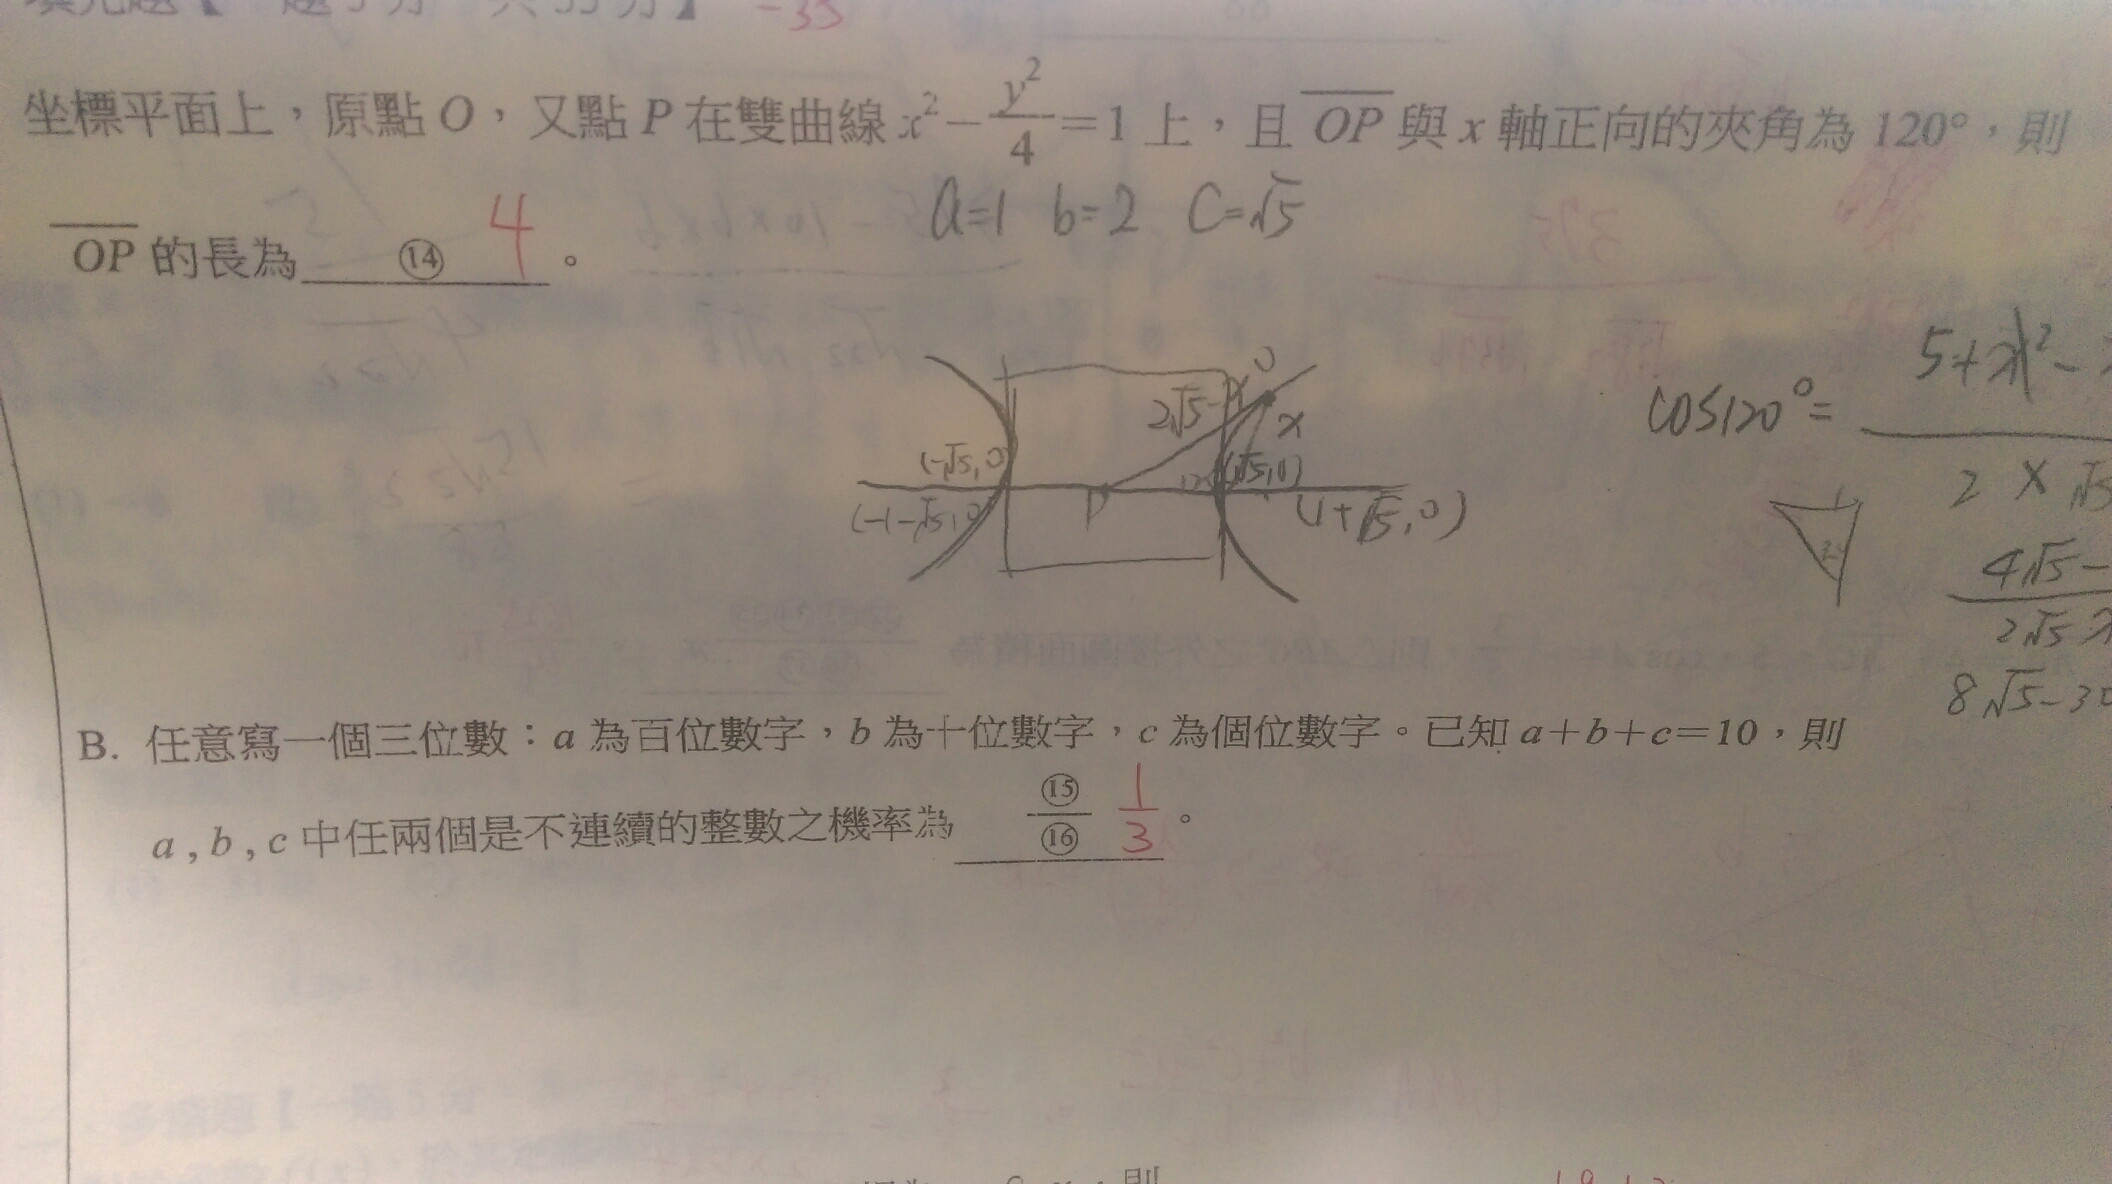 填充題【一題5分，共35分】 -35
坐標平面上，原點 O，又點 P 在雙曲線 x²－y²/4＝1 上，且 OP 與 x 軸正向的夾角為 120°，則
OP 的長為 ⑭ 4 。
a=1 b=2 c=√5
2√5-x
x
(-√5,0)
(√5,0)
(-1-√5,0)
P
(1+√5,0)
cos120°=
5+x²-
2×√5
4√5-
2√5x
8√5-
B. 任意寫一個三位數：a 為百位數字，b 為十位數字，c 為個位數字。已知 a＋b＋c＝10，則
a , b , c 中任兩個是不連續的整數之機率為 ⑮/⑯ 1/3 。